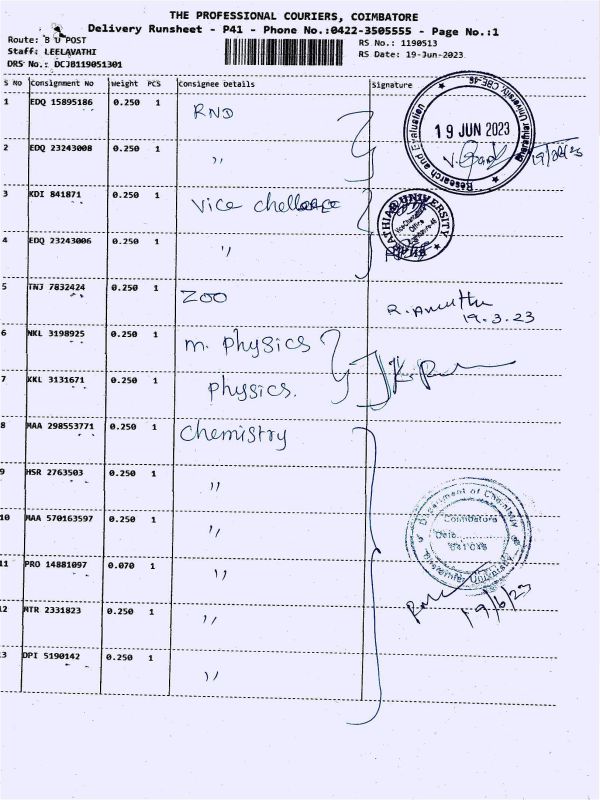 THE PROFESSIONAL COURIERS, COIMBATORE
Delivery Runsheet - P41 - Phone No.:0422-3505555 - Page No.:1
Route: B U POST
Staff: LEELAVATHI
DRS No.: DCJB119051301
RS No.: 1190513
RS Date: 19-Jun-2023
S No Consignment No Weight PCS Consignee Details Signature
1 EDQ 15895186 0.250 1 RND
Research and Evaluation
Bharathiar University, CBE-46
19 JUN 2023
2 EDQ 23243008 0.250 1 ,,
3 KDI 841871 0.250 1 Vice
4 EDQ 23243006 0.250 1 ,,
5 TNJ 7832424 0.250 1 ZOO
19.3.23
6 NKL 3198925 0.250 1 m. physics
7 KKL 3131671 0.250 1 physics.
8 MAA 298553771 0.250 1 Chemistry
9 HSR 2763503 0.250 1 ,,
Department of Chemistry
Coimbatore
Date
641046
Bharathiar University
10 MAA 570163597 0.250 1 ,,
11 PRO 14881097 0.070 1 ,,
19/6/23
12 MTR 2331823 0.250 1 ,,
13 DPI 5190142 0.250 1 ,,